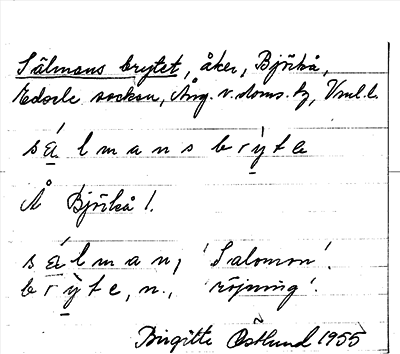 Sälmans brytet, åker, Björkå,
socken, Ång. v. doms. h,
sä́lmans brỳte
Å Björkå 1.
sä́lman, 'Salomon'.
brỳte, n., 'röjning'.
Birgitte Östlund 1955